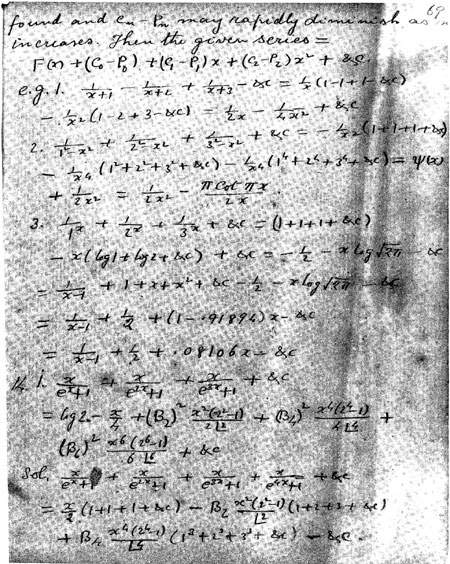 69
found and Cn - Pn may rapidly diminish as n
increases. Then the given series =
F(x) + (C₀-P₀) + (C₁-P₁)x + (C₂-P₂)x² + &c.
e.g. 1. 1/(x+1) - 1/(x+2) + 1/(x+3) - &c = 1/x (1-1+1-&c)
- 1/x² (1-2+3-&c) = 1/2x - 1/4x² + &c
2. 1/(1²-x²) + 1/(2²-x²) + 1/(3²-x²) + &c = - 1/x² (1+1+1+&c)
- 1/x⁴ (1²+2²+3²+&c) - 1/x⁶ (1⁴+2⁴+3⁴+&c) = ψ(x)
+ 1/2x² = 1/2x² - π Cot πx/2x.
3. 1/1ˣ + 1/2ˣ + 1/3ˣ + &c = (1+1+1+&c)
- x(log1+log2+&c) + &c = - 1/2 - x log√2π - &c
= 1/(x-1) + 1+x+x²+&c - 1/2 - x log√2π - &c
= 1/(x-1) + 1/2 + (1-.91894)x - &c
= 1/(x-1) + 1/2 + .08106x - &c
14. i. x/(eˣ+1) + x/(e²ˣ+1) + x/(e³ˣ+1) + &c
= log2 - x/4 + (B₂)² x²(2²-1)/2⌊2 + (B₄)² x⁴(2⁴-1)/4⌊4 +
(B₆)² x⁶(2⁶-1)/6⌊6 + &c
Sol. x/(eˣ+1) + x/(e²ˣ+1) + x/(e³ˣ+1) + x/(e⁴ˣ+1) + &c
= x/2 (1+1+1+&c) - B₂ x²(2²-1)/⌊2 (1+2+3+&c)
+ B₄ x⁴(2⁴-1)/⌊4 (1³+2³+3³+&c) - &c.